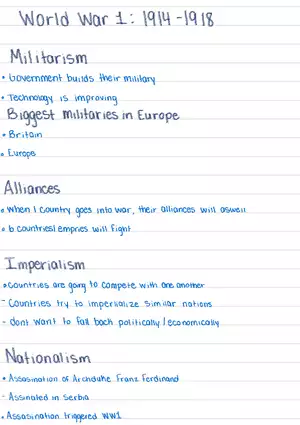 World War 1: 1914-1918
Militarism
• Government builds their military
• Technology is improving
Biggest militaries in Europe
• Britain
• Europe
Alliances
• When 1 country goes into war, their alliances will aswell.
• 6 countries/empries will fight
Imperialism
• Countries are going to compete with one another
- Countries try to imperialize similar nations
- dont want to fall back politically/economically
Nationalism
• Assasination of Archduke Franz Ferdinand
- Assinated in Serbia
• Assasination triggered WW1